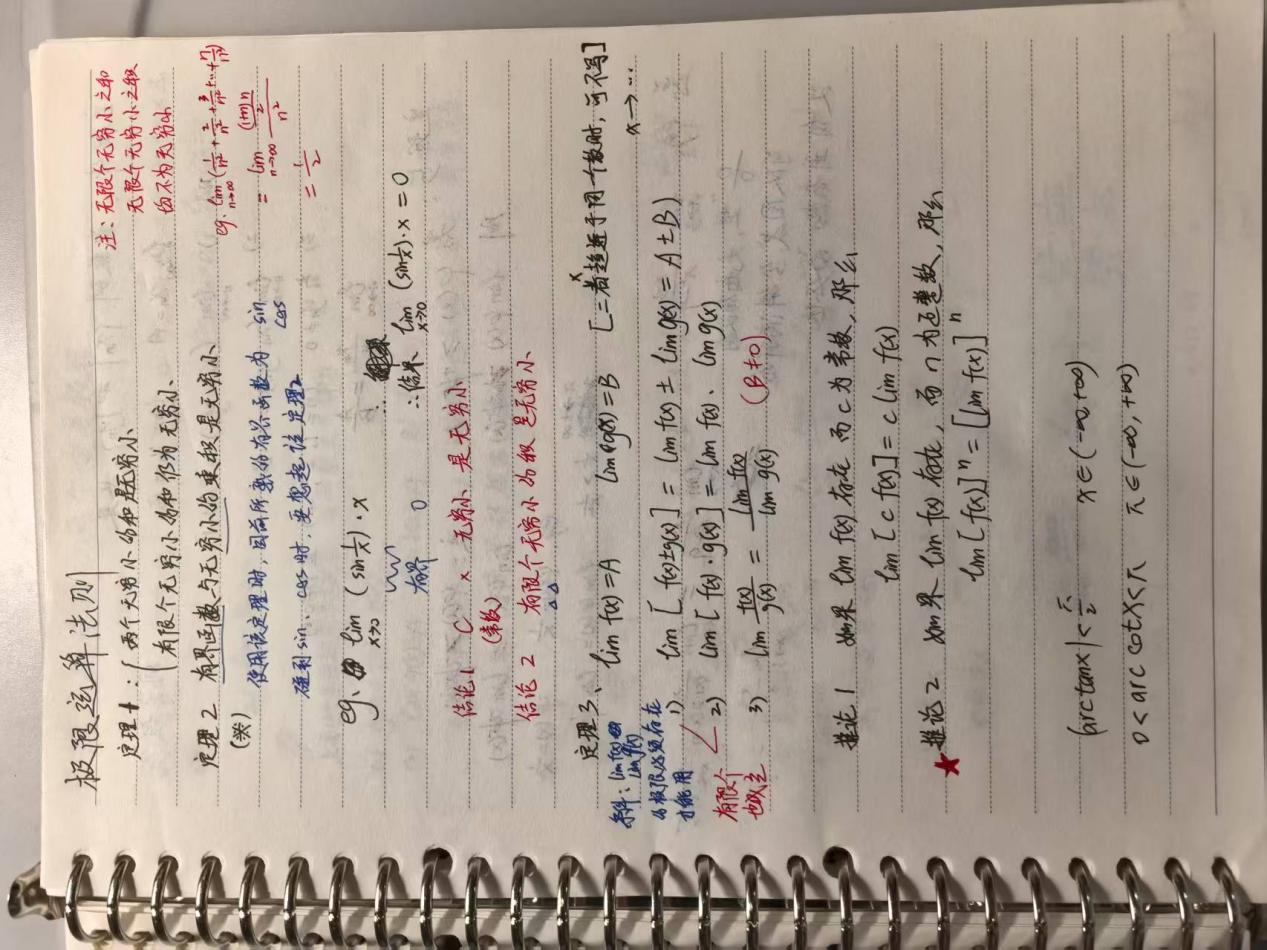 极限运算法则
注：无限个无穷小之和
无限个无穷小之积
均不为无穷小
定理1：两个无穷小的和是无穷小、
有限个无穷小的和仍为无穷小、
eg. lim n→∞ (1/n² + 2/n² + 3/n² + … + n/n²)
= lim n→∞ ((1+n)n/2)/n²
= 1/2
定理2 有界函数与无穷小的乘积是无穷小、
(类)
使用该定理时，目前所熟的有界函数为 sin cos
碰到 sin、cos时，要想起该定理2
eg、lim x→0 (sin 1/x)·x
有界 0
∴结果 lim x→0 (sin 1/x)·x = 0
结论1 C × 无穷小 是无穷小
(常数)
结论2 有限个无穷小的积是无穷小
定理3、 lim f(x)=A lim g(x)=B [二者x趋近于同一个数时，可不写]
x→…
条件：lim f(x) lim g(x)
的极限必须存在
才能用
1) lim [f(x)±g(x)] = lim f(x) ± lim g(x) = A±B)
2) lim [f(x)·g(x)] = lim f(x)、lim g(x)
有限个
也成立
3) lim f(x)/g(x) = lim f(x)/lim g(x) (B≠0)
推论1 如果 lim f(x) 存在 而 c 为常数，那么
lim [c f(x)] = c lim f(x)
★推论2 如果 lim f(x) 存在，而 n 为正整数，那么
lim [f(x)]ⁿ = [lim f(x)]ⁿ
|arctanx| < π/2 x∈(-∞,+∞)
0 < arc cotx < π x∈(-∞,+∞)